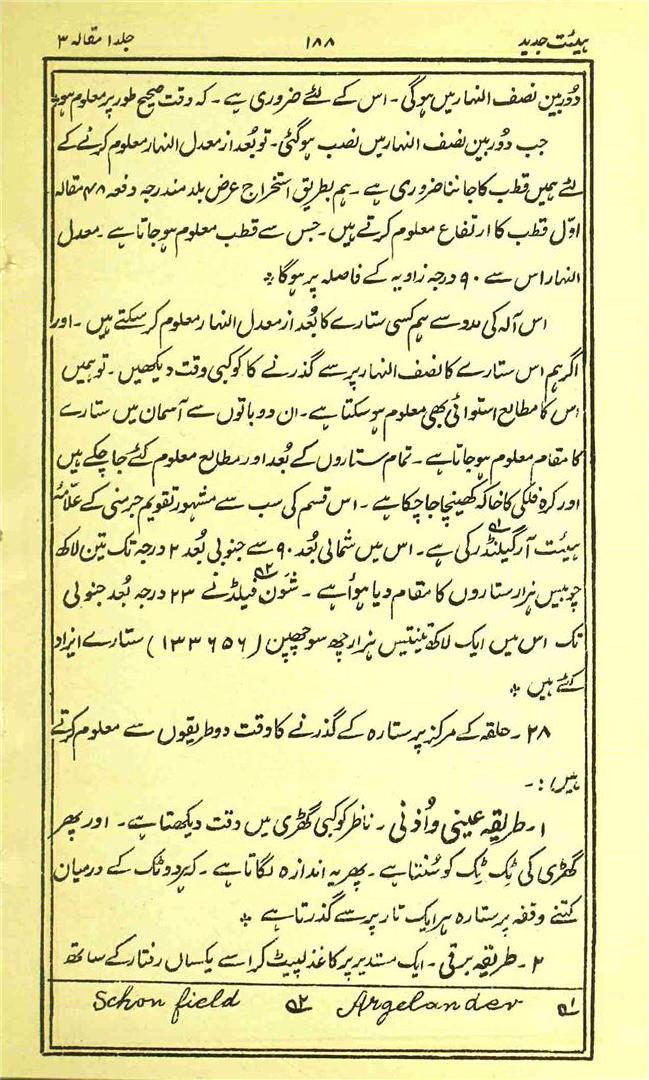 ہیئت جدید ۱۸۸ جلد ۱ مقالہ ۳
دُوربین نصف النہار میں ہوگی۔ اس کے لئے ضروری ہے۔ کہ وقت صحیح طور پر معلوم ہو۔
جب دُوربین نصف النہار میں نصب ہوگئی۔ تو بُعد از معدل النہار معلوم کرنے کے
لئے ہمیں قطب کا جاننا ضروری ہے۔ ہم بطریق استخراج عرض بلد مندرجہ دفعہ ۴۸ مقالہ
اوّل قطب کا ارتفاع معلوم کرتے ہیں۔ جس سے قطب معلوم ہوجاتا ہے۔ معدل
النہار اس سے ۹۰ درجہ زاویہ کے فاصلہ پر ہوگا ؞
اس آلہ کی مدد سے ہم کسی ستارے کا بُعد از معدل النہار معلوم کرسکتے ہیں۔ اور
اگر ہم اس ستارے کا نصف النہار پر سے گذرنے کا کوکبی وقت دیکھیں۔ تو ہمیں
اس کا مطالع استوائی بھی معلوم ہوسکتا ہے۔ ان دو باتوں سے آسمان میں ستارے
کا مقام معلوم ہوجاتا ہے۔ تمام ستاروں کے بُعد اور مطالع معلوم کئے جاچکے ہیں
اور کرہ فلکی کا خاکہ کھینچا جاچکا ہے۔ اس قسم کی سب سے مشہور تقویم جرمنی کے علّامۂ
ہیئت آرگیلنڈر۱؎ کی ہے۔ اس میں شمالی بُعد ۹۰ سے جنوبی بُعد ۲ درجہ تک تین لاکھ
چوبیس ہزار ستاروں کا مقام دیا ہوا ہے۔ شون فیلڈ۲؎ نے ۲۳ درجہ بُعد جنوبی
تک اس میں ایک لاکھ تینتیس ہزار چھ سو چھپن (۱۳۳۶۵۶) ستارے ایزاد
کئے ہیں ؞
۲۸۔ حلقہ کے مرکز پر ستارہ کے گذرنے کا وقت دو طریقوں سے معلوم کرتے
ہیں:۔
۱۔ طریقہ عینی و اُذنی۔ ناظر کوکبی گھڑی میں وقت دیکھتا ہے۔ اور پھر
گھڑی کی ٹِک ٹِک کو سُنتا ہے۔ پھر یہ اندازہ لگاتا ہے۔ کہ ہر دو ٹک کے درمیان
کتنے وقفہ پر ستارہ ہر ایک تار پر سے گذرتا ہے ؞
۲۔ طریقہ برقی۔ ایک مستدیر پر کاغذ لپیٹ کر اسے یکساں رفتار کے ساتھ
۱؎ Argelander ۲؎ Schon field